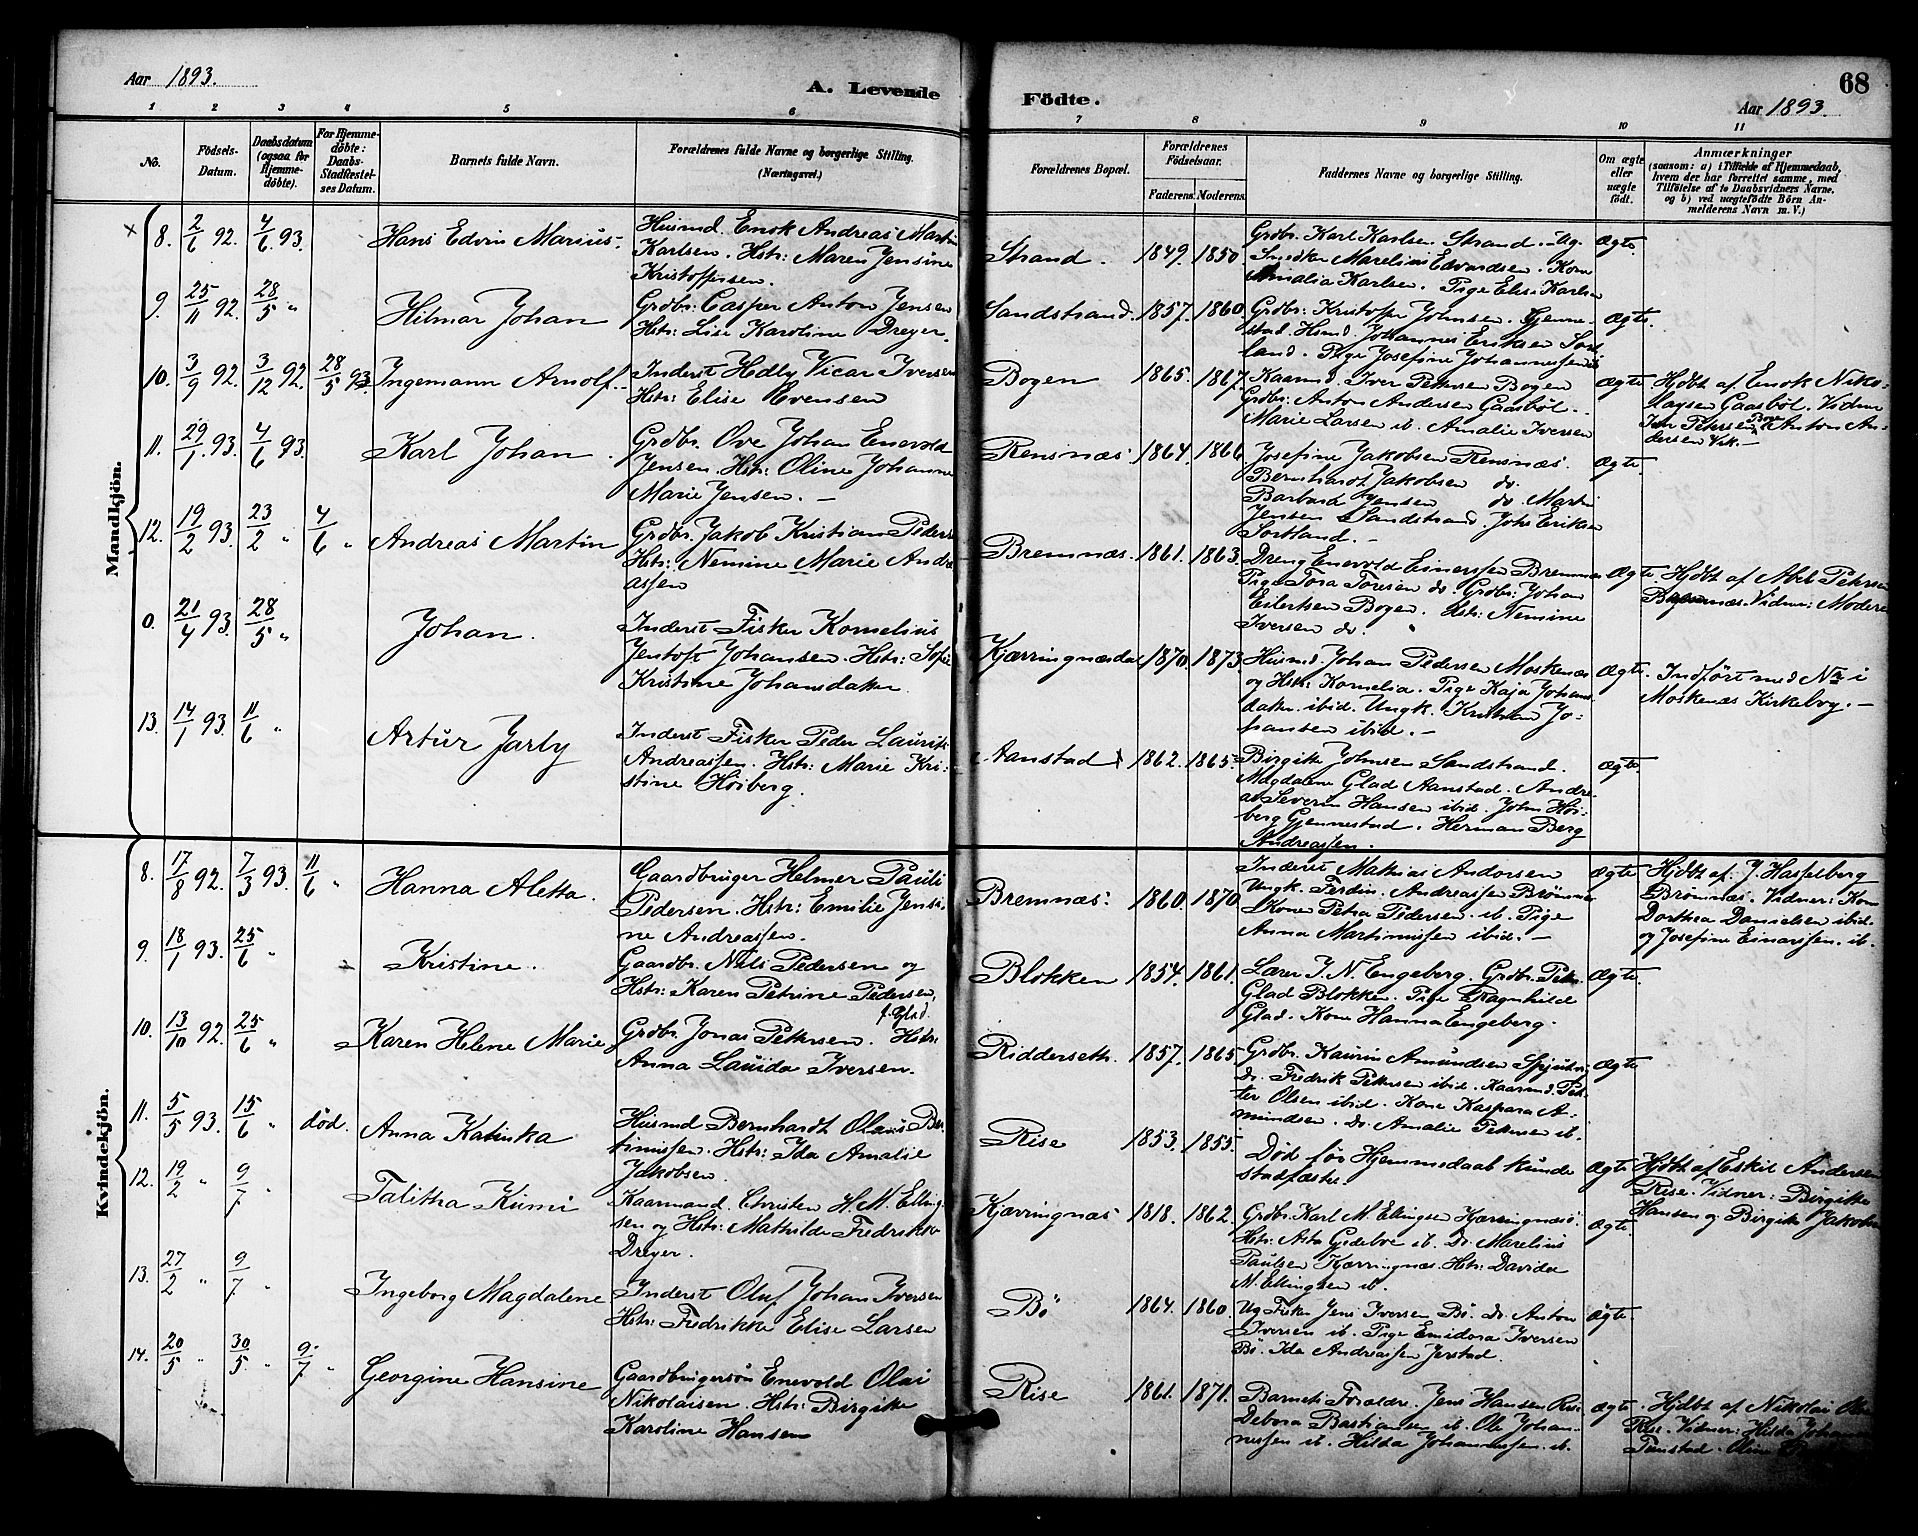 Aar 1893.
A. Levende
Födte.
68
Aar 1893.
1 2 3 4 5 6 7 8 9 10 11
No.
Födsels-Datum.
Daabsdatum (ogsaa for Hjemme-döbte).
For Hjemme-döbte: Daabs-Stadfæstel-ses Datum.
Barnets fulde Navn.
Forældrenes fulde Navne og borgerlige Stilling.
(Næringsvei.)
Forældrenes Bopæl.
Forældrenes Födselsaar.
Faderens. Moderens.
Faddernes Navne og borgerlige Stilling.
Om ægte eller uægte födt.
Anmærkninger
(saasom: a) i Tilfælde af Hjemmedaab,
hvem der har forrettet samme, med
Tilföielse af to Daabsvidners Navne,
og b) ved uægtefödte Börn An-
melderens Navn m. V.)
Mandkjön.
× 8. 2/6 92. 4/6 93. Hans Edvin Marius.
Husmd. Enok Andreas Martin
Karlsen. Hstr: Maren Jensine
Kristoffersen.
Strand. 1849. 1850
Grdbr. Karl Karlsen Strand. Ug.
Snedker Marelius Edvardsen. Kone
Amalia Karlsen. Pige Elise Karlsen
Ægte.
9. 25/11 92. 28/5 " Hilmar Johan
Grdbr. Casper Anton Jensen
Hstr: Lise Karoline Dreyer.
Sandstrand. 1857. 1860.
Grdbr. Kristoffer Johnsen. Gjenne-
stad. Hsmd. Johannes Eriksen Sort
land. Pige Josefine Johannessen
Ægte.
10. 3/9 92. 3/12 92. 28/5 93. Ingemann Arnolf.
Inderst Hedly Vicar Iversen
Hstr: Elise Evensen
Bogen 1865. 1867.
Kaarmd. Iver Pettersen Bogen
Grdbr. Anton Andersen Gaasböl.
Marie Larsen ib. Amalie Iversen
Ægte.
Hjdbt af Enok Niko-
laysen Gaasböl. Vidner
Petersen Bogen Anton An-
dersen Vik.
11. 29/1 93. 4/6 93. Karl Johan.
Grdbr. Ove Johan Enevold
Jensen. Hstr: Oline Johanne
Marie Jensen.
Rensnæs 1864. 1866.
Josefine Jakobsen Rensnæs.
Bernhardt Jakobsen do.
Jensen do. Martin
Jensen Sandstrand. Johs Eriksen
Sortland.
Ægte.
12. 19/2 93. 23/2 " 4/6 " Andreas Martin
Grdbr. Jakob Kristian Peders
Hstr: Nemine Marie Andre
assen
Bremnæs. 1861. 1863.
Dreng Enevold Einerssen Bremnæs
Pige Tora Toresen do. Grdbr: Johan
Eilertsen Bogen. Hstr: Nemine
Iversen do.
Ægte.
Hjdbt af Abel Petersen
Bremnæs. Vidner: Moderen
0. 21/4 93. 28/5 " Johan.
Inderst Fisker Kornelius
Jentoft Johansen. Hstr: Sofie
Kristine Johansdatter.
Kjærringnæsdal 1870. 1873.
Husmd. Johan Pedersen Moskenæs
og Hstr. Kornelia. Pige Kaja Johans
datter. ibid. Ungk. Kristian Jo-
hansen ibid.
Ægte.
Indført med Nr i
Moskenæs Kirkebog.
13. 14/1 93. 11/6 " Artur Jarby
Inderst Fisker Peder Laurits
Andreassen. Hstr: Marie Kri-
stine Höiberg.
Aanstad 1862. 1865.
Birgitte Johnsen Sandstrand.
Magdalene Glad Aanstad. Andre-
as Severin Hansen ibid. John Höi-
berg Gjennestad. Herman Berg
Andreassen.
Ægte.
Kvindekjön.
8. 17/8 92. 7/3 93. 11/6 " Hanna Aletta.
Gaardbruger Helmer Pauli
Pedersen. Hstr: Emilie Jensi-
ne Andreassen.
Bremnæs. 1860. 1870.
Inderst Mathias Andorsen
Ungk. Ferdin. Andreassen Brömnæs
Kone Petra Pedersen. ib. Pige
Anna Martinussen ibid.
Ægte.
Hjdbt af: J. Hasselberg
Brömnæs. Vidner: Kone
Dorthea Danielsen ibid.
og Josefine Einarssen. ib.
9. 18/1 93. 25/6 " Kristine.
Gaardbr. Nils Pedersen og
Hstr: Karen Petrine Pedersen,
f. Glad.
Blokken 1854. 1861.
Lærer J. N. Engeberg. Grdbr. Peter
Glad Blokken. Pige Ragnhilde
Glad. Kone Hanna Engeberg.
Ægte.
10. 13/10 92. 25/6 " Karen Helene Marie
Grdbr. Jonas Pettersen. Hstr:
Anna Lauida Iversen.
Ridderseth. 1857. 1865
Grdbr. Kaurin Amundsen
Do. Fredrik Petersen ibid. Kaarmd. Pet-
ter Olsen ibid. Kone Kaspara A-
mundsen. Do. Amalie Petersen ib.
Ægte.
11. 5/5 93. 15/6 " død. Anna Katinka
Husmd Bernhardt Olaus Ber
tinussen. Hstr: Ida Amalie
Jakobsen.
Rise 1853. 1855.
Död før Hjemmedaab kunde
stadfæstes.
Ægte
Hjdbt af Eskil Andersen
Rise. Vidner: Birgitte
Hansen og Birgitte Jakobsen
12. 19/2 " 9/7 " Talitha Kumi
Kaarmand. Christen H. M. Elling-
sen og Hstr: Mathilde Fredrikke
Dreyer.
Kjærringnæs. 1818. 1862.
Grdbr. Karl M. Ellingsen Kjærringnæs.
Hstr: Asta Gjedeboe ib. Do. Marelius
Paulsen Kjærringnæs. Hstr: Davida
M. Ellingsen ib.
Ægte.
13. 27/2 " 9/7 " Ingeborg Magdalene
Inderst Oluf Johan Iversen
Hstr: Fredrikke Elise Larsen
Bö 1864. 1860.
Ug Fisker Jens Iversen Bö. Do. Anton
Iversen ib. Pige Emidora Iversen
Bö. Ida Andreassen Jerstad.
Ægte.
14. 20/5 " 30/5 " 9/7 " Georgine Hansine
Gaardbrugersön Enevold Olai
Nikolaisen. Hstr: Birgitte
Karoline Hansen
Rise 1861. 1871.
Barnets Forældre. Jens Hansen Rise
Debora Bastiansen ib. Ole Johan-
nessen ib. Hilda Johannessen ib.
Ægte.
Hjdbt af Nikolai Olsen
Rise. Vidner: Hilda Johannes